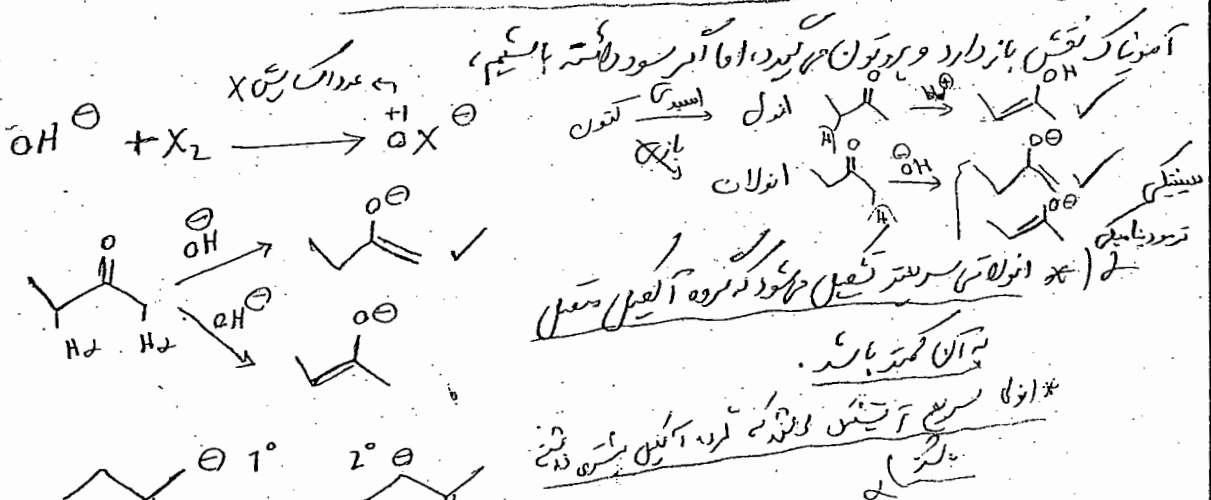 آمونیاک نقش باز دارد و پروتون می‌گیرد، اما اگر سود داشته باشیم،
عدد اکسایش X
OH⊖ + X₂ → +1 OX⊖
کتون اسیدی → انول
H⊕
OH ✓
بازی
انولات
⊖OH
O⊖ ✓
O⊖
سینتیکی
ترمودینامیکی
O
⊖OH
O⊖ ✓
OH⊖
O⊖
Hα Hα
* انولاتی سریعتر تشکیل می‌شود که گروه آلکیل متصل
به آن کمتر باشد.
* انولی سریع که گروه آلکیل بیشتری
باشد
⊖ 1° 2° ⊖